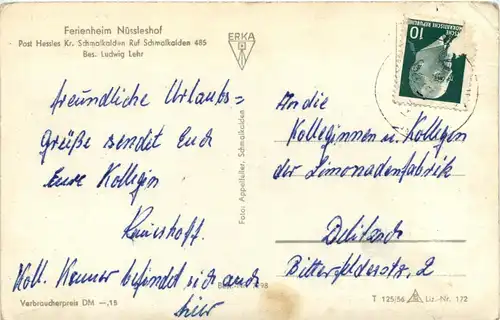 Ferienheim Nüssleshof
Post Hessles Kr. Schmalkalden Ruf Schmalkalden 485
Bes. Ludwig Lehr
ERKA
DEUTSCHE DEMOKRATISCHE REPUBLIK
10
freundliche Urlaubs=
grüße sendet Euch
Eure Kollegin
Koll. Kenner befindet sich auch
hier
Foto: Appelfeller, Schmalkalden
An die
Kolleginnen u. Kollegen
der Limonadenfabrik
Delitzsch
Bitterfelderstr. 2
Verbraucherpreis DM —,15
T 125/56 Liz.-Nr. 172